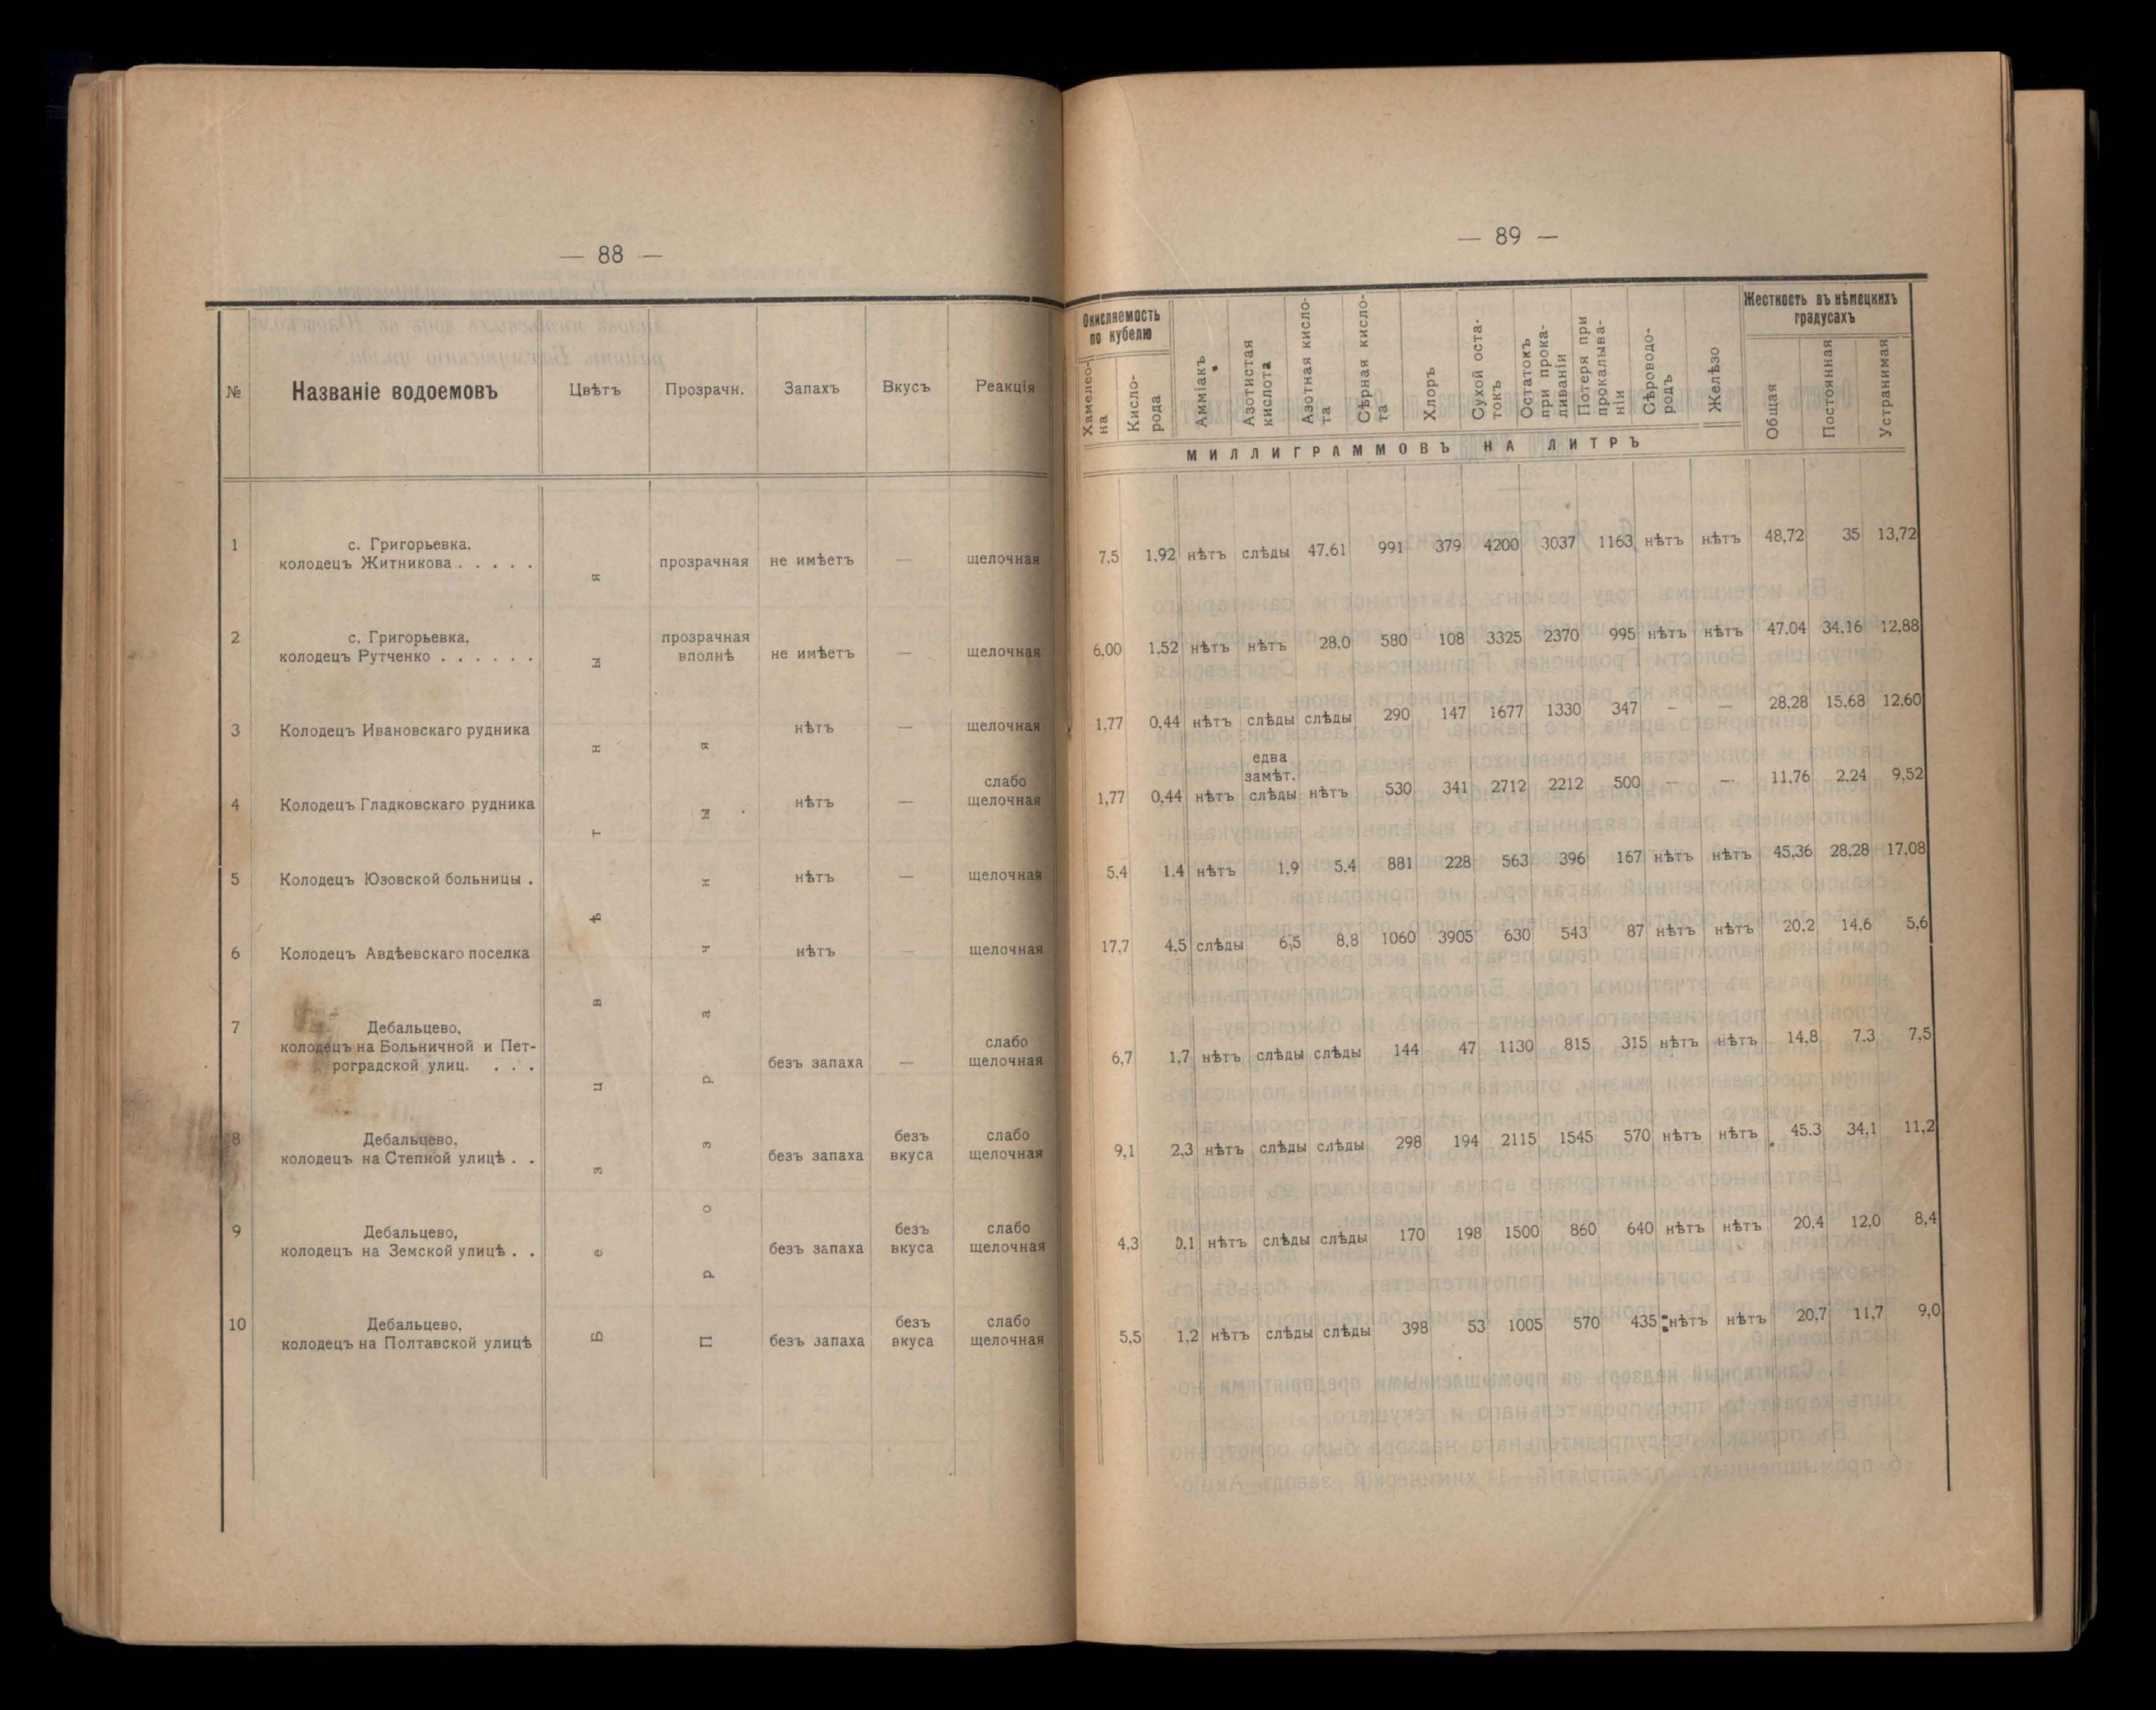 — 88 —
№ Названіе водоемовъ Цвѣтъ Прозрачн. Запахъ Вкусъ Реакція
1 с. Григорьевка,
колодецъ Житникова . . . . . прозрачная не имѣетъ — щелочная
2 с. Григорьевка, прозрачная
колодецъ Рутченко . . . . . . вполнѣ не имѣетъ — щелочная
3 Колодецъ Ивановскаго рудника нѣтъ — щелочная
слабо
4 Колодецъ Гладковскаго рудника нѣтъ — щелочная
5 Колодецъ Юзовской больницы . нѣтъ — щелочная
6 Колодецъ Авдѣевскаго поселка нѣтъ — щелочная
7 Дебальцево,
колодецъ на Больничной и Пет- слабо
роградской улиц. . . . безъ запаха — щелочная
8 Дебальцево, безъ слабо
колодецъ на Степной улицѣ . . безъ запаха вкуса щелочная
9 Дебальцево, безъ слабо
колодецъ на Земской улицѣ . . безъ запаха вкуса щелочная
10 Дебальцево, безъ слабо
колодецъ на Полтавской улицѣ безъ запаха вкуса щелочная
Безцвѣтная
Прозрачная
— 89 —
Окисляемость
по кубелю
Хамелео-
на
Кисло-
рода
Амміакъ
Азотистая
кислота
Азотная кисло-
та
Сѣрная кисло-
та
Хлоръ
Сухой оста-
токъ
Остатокъ
при прока-
ливаніи
Потеря при
прокалыва-
ніи
Сѣроводо-
родъ
Желѣзо
Жесткость въ нѣмецкихъ
градусахъ
Общая
Постоянная
Устранимая
МИЛЛИГРАММОВЪ НА ЛИТРЪ
7,5 1,92 нѣтъ слѣды 47,61 991 379 4200 3037 1163 нѣтъ нѣтъ 48,72 35 13,72
6,00 1,52 нѣтъ нѣтъ 28,0 580 108 3325 2370 995 нѣтъ нѣтъ 47,04 34,16 12,88
1,77 0,44 нѣтъ слѣды слѣды 290 147 1677 1330 347 — — 28,28 15,68 12,60
едва
замѣт.
1,77 0,44 нѣтъ слѣды нѣтъ 530 341 2712 2212 500 — — 11,76 2,24 9,52
5,4 1,4 нѣтъ 1,9 5,4 881 228 563 396 167 нѣтъ нѣтъ 45,36 28,28 17,08
17,7 4,5 слѣды 6,5 8,8 1060 3905 630 543 87 нѣтъ нѣтъ 20,2 14,6 5,6
6,7 1,7 нѣтъ слѣды слѣды 144 47 1130 815 315 нѣтъ нѣтъ 14,8 7,3 7,5
9,1 2,3 нѣтъ слѣды слѣды 298 194 2115 1545 570 нѣтъ нѣтъ 45,3 34,1 11,2
4,3 0,1 нѣтъ слѣды слѣды 170 198 1500 860 640 нѣтъ нѣтъ 20,4 12,0 8,4
5,5 1,2 нѣтъ слѣды слѣды 398 53 1005 570 435 нѣтъ нѣтъ 20,7 11,7 9,0